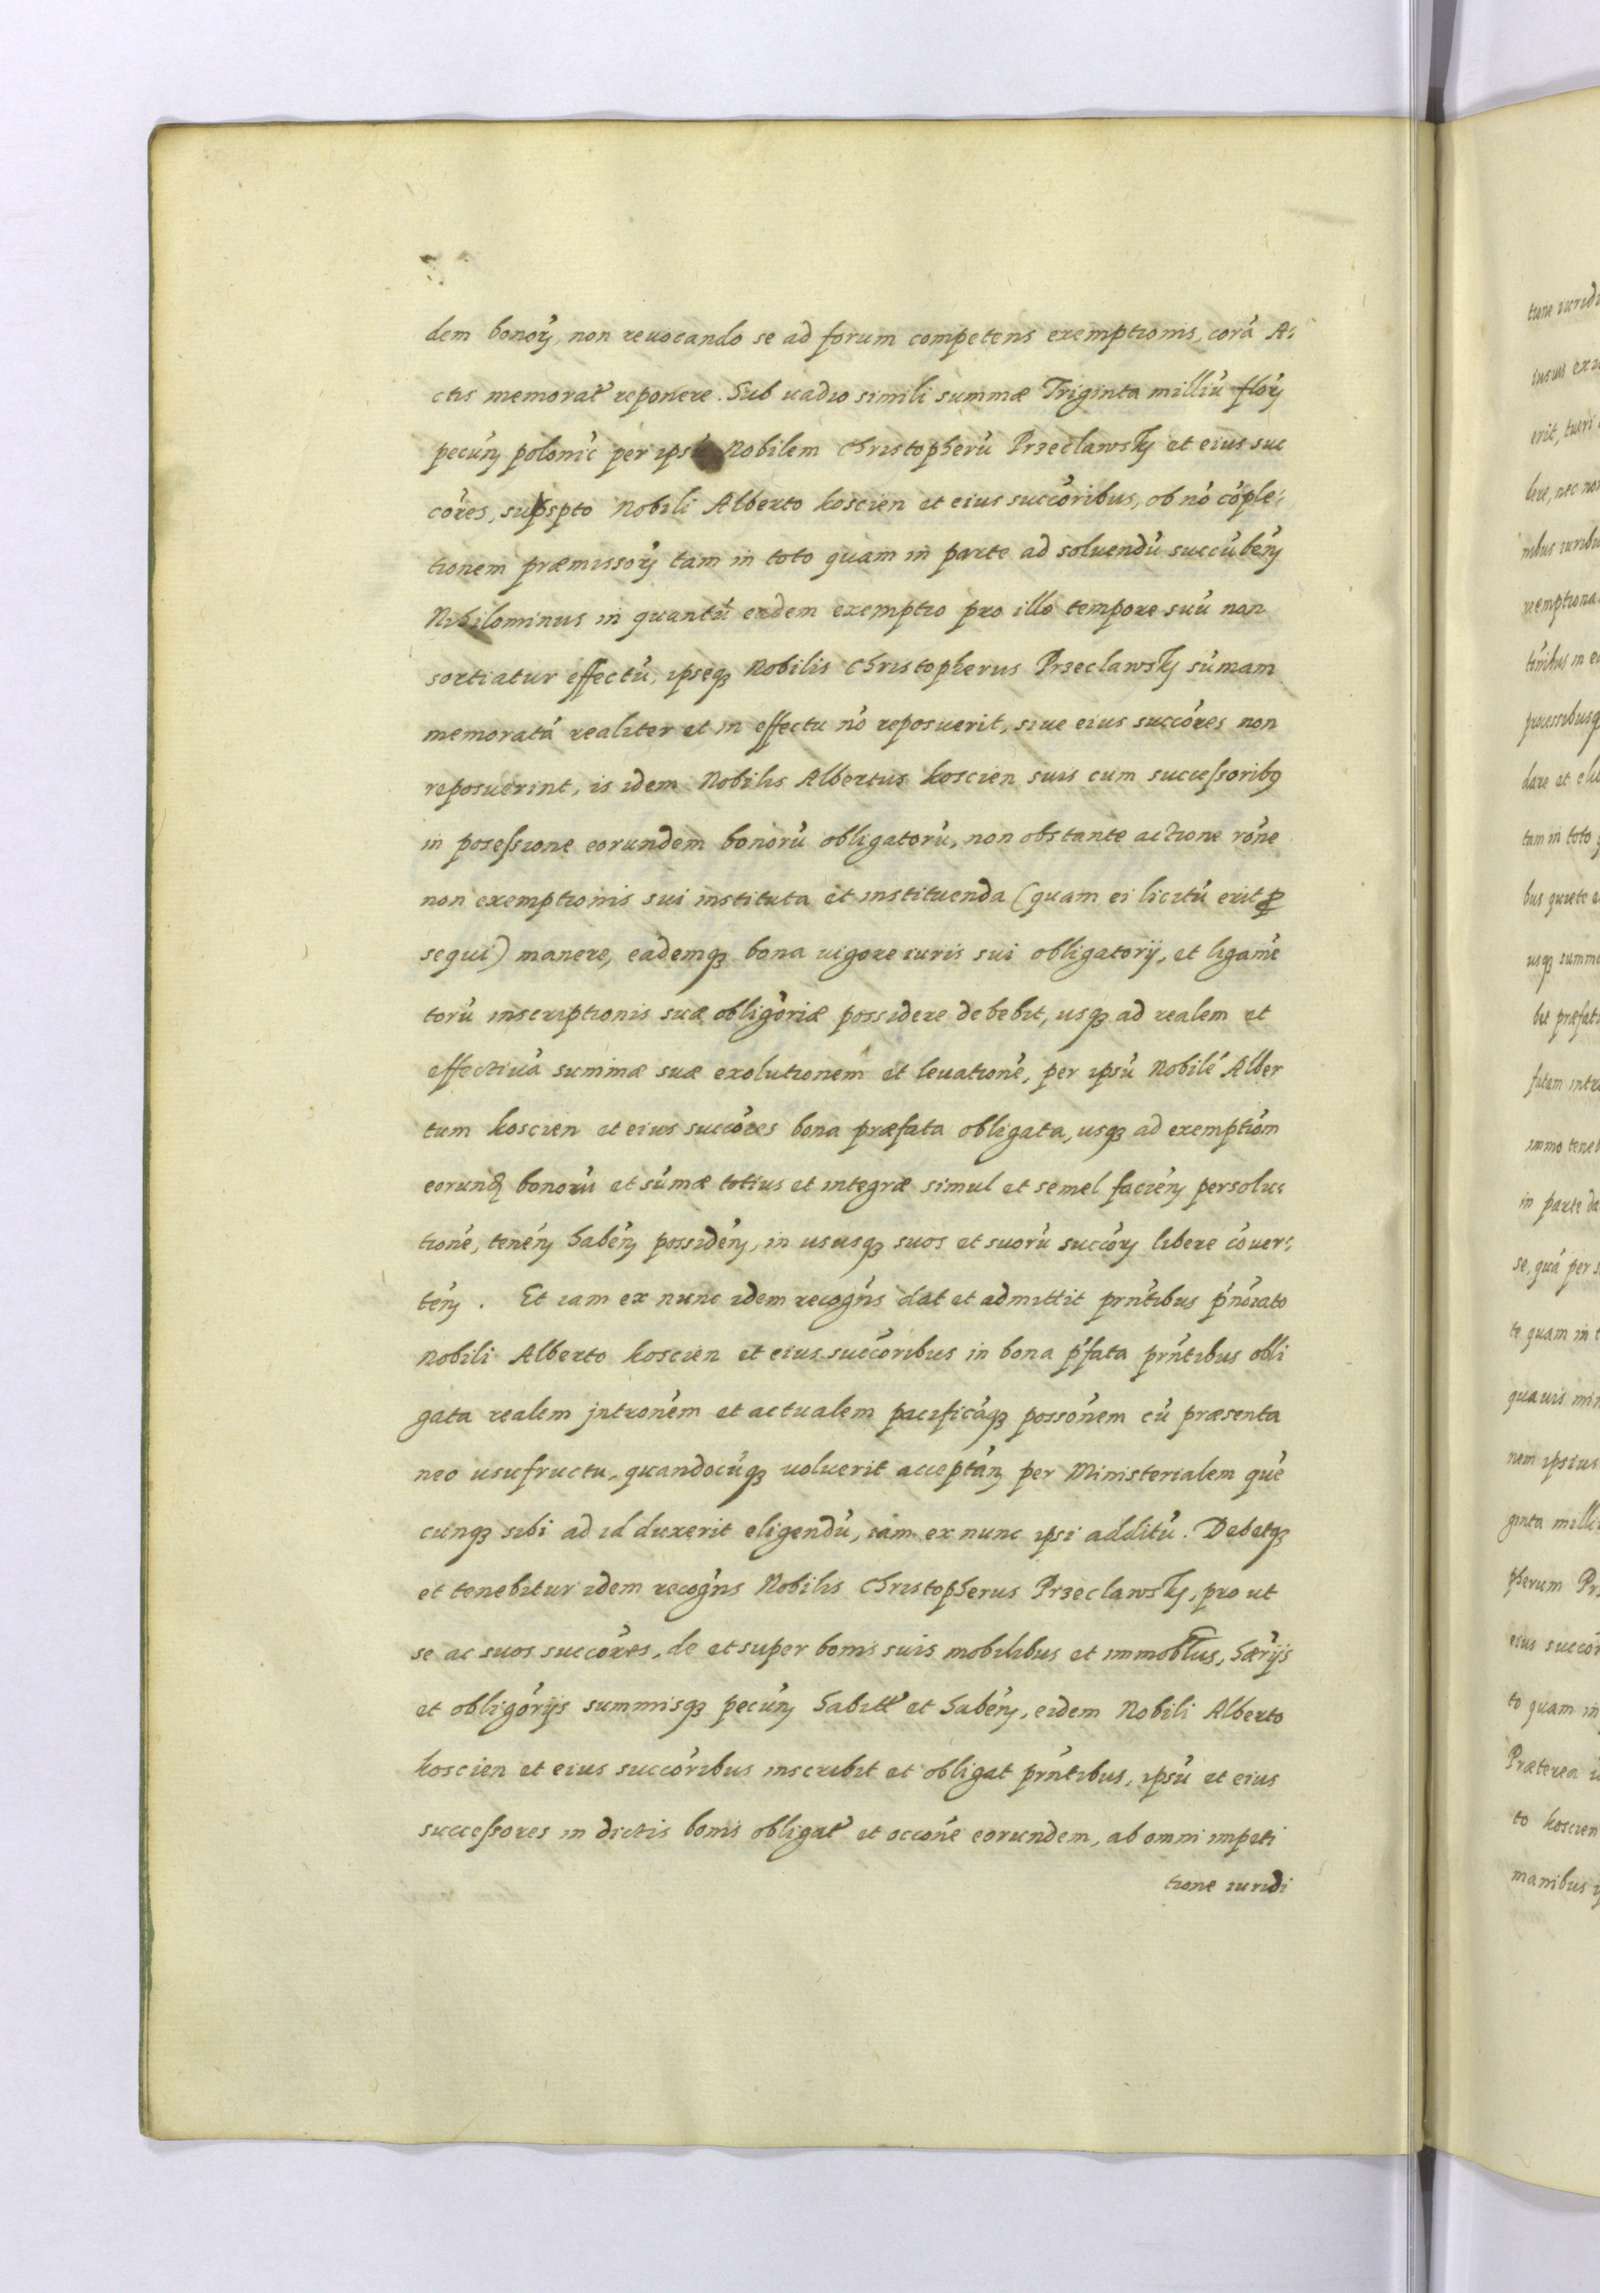 dem bonorῡ, non reuocando se ad forum competens exemptionis, corā A:
ctis memorat̃ reponere. Sub uadio simili summæ Triginta milliū florῡ
pecuñ poloniĉ per ipsū Nobilem Christopherū Przeclawsky et eius suc
cōres, supspto Nobili Alberto koscien et eius succōribus, ob nō cōple:
tionem præmissorῡ tam in toto quam in parte ad soluendū succūbeñ
Nihilominus in quantū eadem exemptio pro illo tempore suū non
sortiatur effectū, ipseqꝫ Nobilis Christopherus Przeclawsky sūmam
memoratā realiter et in effectu nō reposuerit, siue eius succōres non
reposuerint, is idem Nobilis Albertus koscien suis cum successoribꝰ
in posessione eorundem bonorū obligatorū, non obstante actione rōne
non exemptionis sui instituta et instituenda (quam ei licitū erit ꝓ
sequi) manere, eademqꝫ bona uigore iuris sui obligatorij, et ligamē
torū inscriptionis suæ obligōriæ possidere debebit, usqꝫ ad realem et
effectiuā summæ suæ exolutionem et leuationē, per ipsū Nobilē Alber
tum koscien et eius succōres bona præfata obligata, usqꝫ ad exemptiōm
eorunđ bonorū et sūmæ totius et integræ simul et semel facieñ persolu:
tionē, teneñ habeñ possideñ, in ususqꝫ suos et suorū succōrῡ libere cōuer:
teñ. Et iam ex nunc idem recogñs dat et admittit prñtibus p̃nōiato
Nobili Alberto koscien et eius succōribus in bona p̃fata prñtibus obli
gata realem jntronēm et actualem pacificāqꝫ possōnem cū præsenta
neo usufructu, quandocūqꝫ uoluerit acceptañ per Ministerialem quē
cunqꝫ sibi ad id duxerit eligendū, iam ex nunc ipsi additū. Debetqꝫ
et tenebitur idem recogñs Nobilis Christopherus Przeclawsky, pro ut
se ac suos succōres, de et super bonis suis mobilibus et immobl̃us, hærijs
et obligōrijs summisqꝫ pecuñ habit̃ et habeñ, eidem Nobili Alberto
koscien et eius succōribus inscribit et obligat prñtibus, ipsū et eius
successores in dictis bonis obligat̃ et occōne eorundem, ab omni impeti
tione iuridi